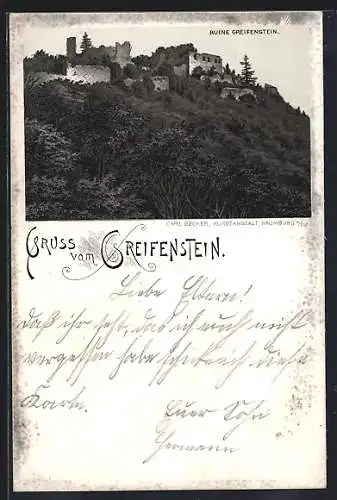 RUINE GREIFENSTEIN.
CARL BECKER, KUNSTANSTALT, NAUMBURG a/S.
GRUSS vom GREIFENSTEIN.
Liebe Eltern!
daß ihr seht, das ich euch nicht
vergessen habe schreib ich diese
Karte.
Euer Sohn
Hermann